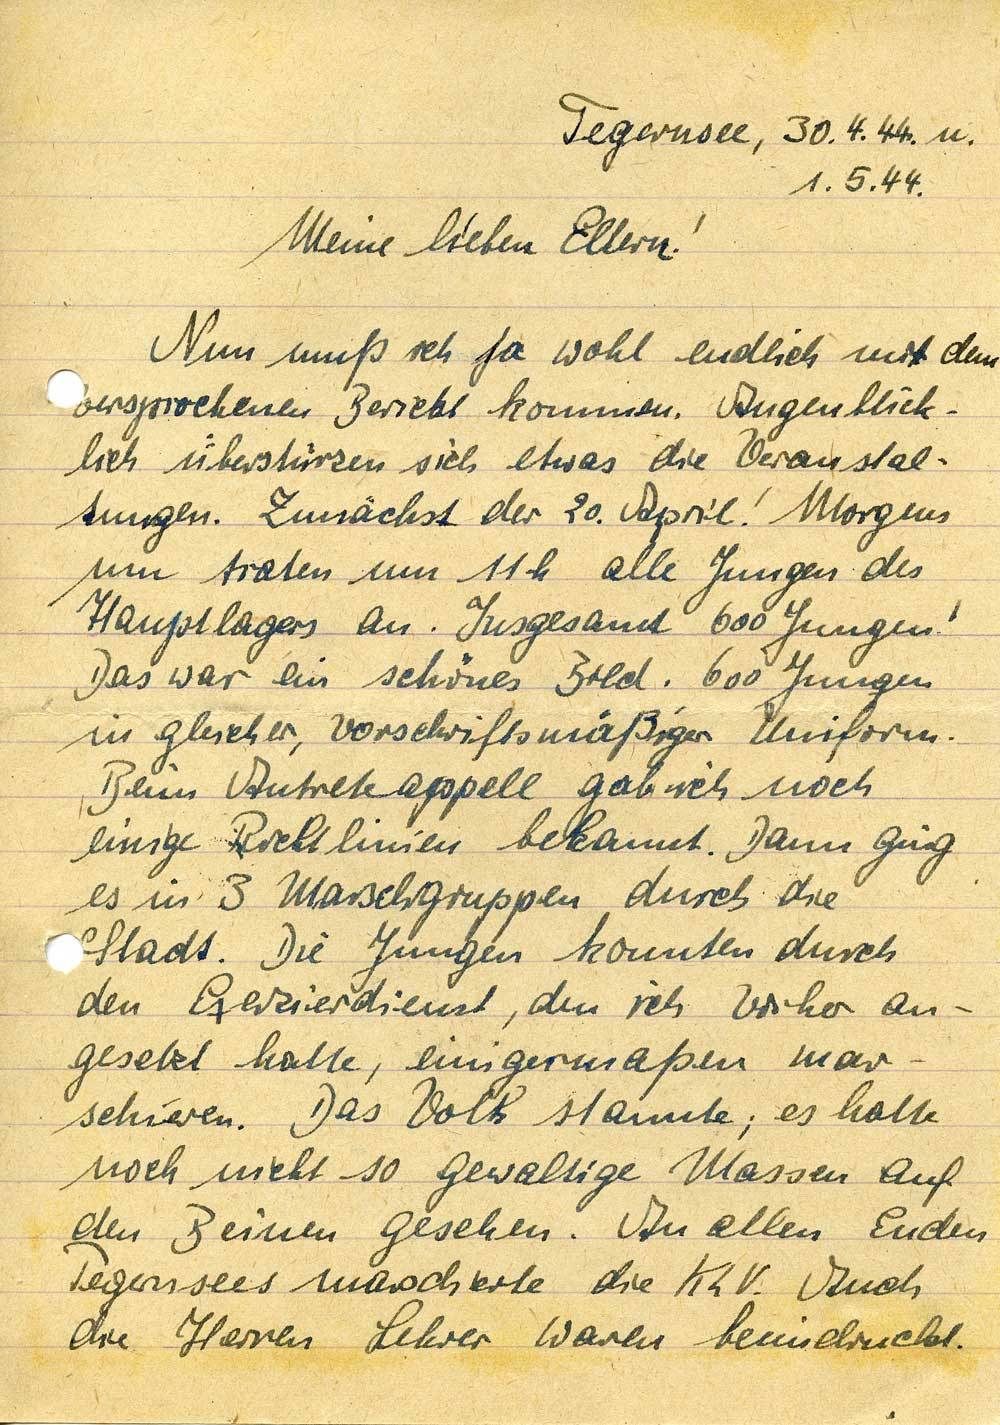 Tegernsee, 30.4.44. u.
1.5.44.
Meine lieben Eltern!
Nun muß ich ja wohl endlich mit dem
versprochenen Bericht kommen. Augenblick-
lich überstürzen sich etwas die Veranstal-
tungen. Zunächst der 20. April! Morgens
um traten um 11h alle Jungen des
Hauptlagers an. Insgesamt 600 Jungen!
Das war ein schönes Bild. 600 Jungen
in gleicher, vorschriftsmäßiger Uniform.
Beim Antreteappell gab ich noch
einige Richtlinien bekannt. Dann ging
es in 3 Marschgruppen durch die
Stadt. Die Jungen konnten durch
den Exerzierdienst, den ich vorher an-
gesetzt hatte, einigermaßen mar-
schieren. Das Volk staunte; es hatte
noch nicht so gewaltige Massen auf
den Beinen gesehen. An allen Enden
Tegernsees marschierte die KLV. Auch
die Herren Lehrer waren beeindruckt.